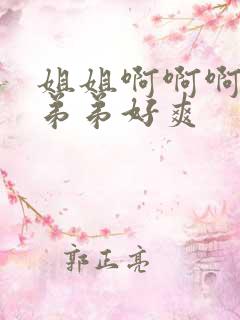 姐姐啊啊啊
弟弟好爽
郭正亮